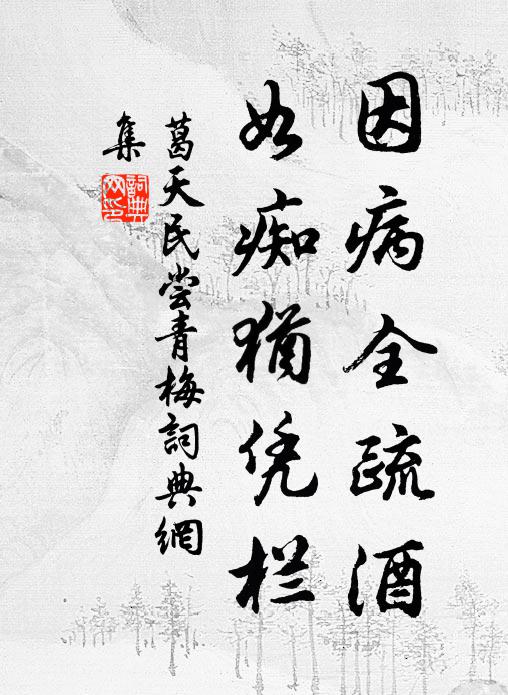 因病全疏酒
如痴猶凭栏
葛天民尝青梅詞典網
集
詞典网印